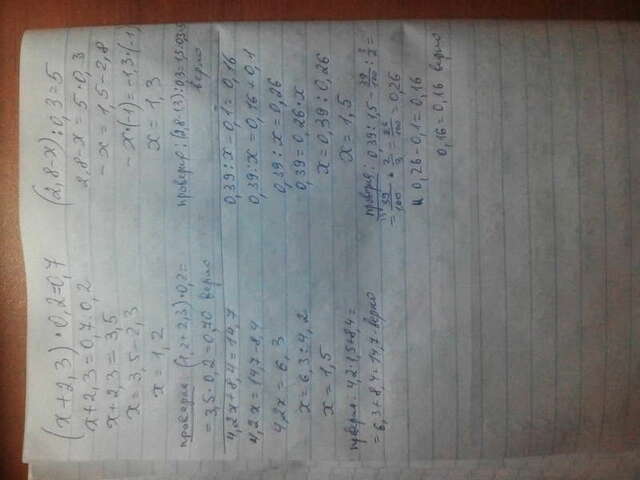 (x+2,3)·0,2=0,7
x+2,3=0,7:0,2
x+2,3=3,5
x=3,5-2,3
x=1,2
проверка: (1,2+2,3)·0,2=
=3,5·0,2=0,70 верно
4,2x+8,4=14,7
4,2x=14,7-8,4
4,2x=6,3
x=6,3:4,2
x=1,5
проверка: 4,2·1,5+8,4=
=6,3+8,4=14,7 верно
(2,8-x):0,3=5
2,8-x=5·0,3
-x=1,5-2,8
-x·(-1)=-1,3·(-1)
x=1,3
проверка: (2,8-1,3):0,3=1,5:0,3=5
верно
0,39:x-0,1=0,16
0,39:x=0,16+0,1
0,39:x=0,26
0,39=0,26·x
x=0,39:0,26
x=1,5
проверка: 0,39:1,5=39/100:3/2=
=39/100·2/3=26/100=0,26
и 0,26-0,1=0,16
0,16=0,16 верно